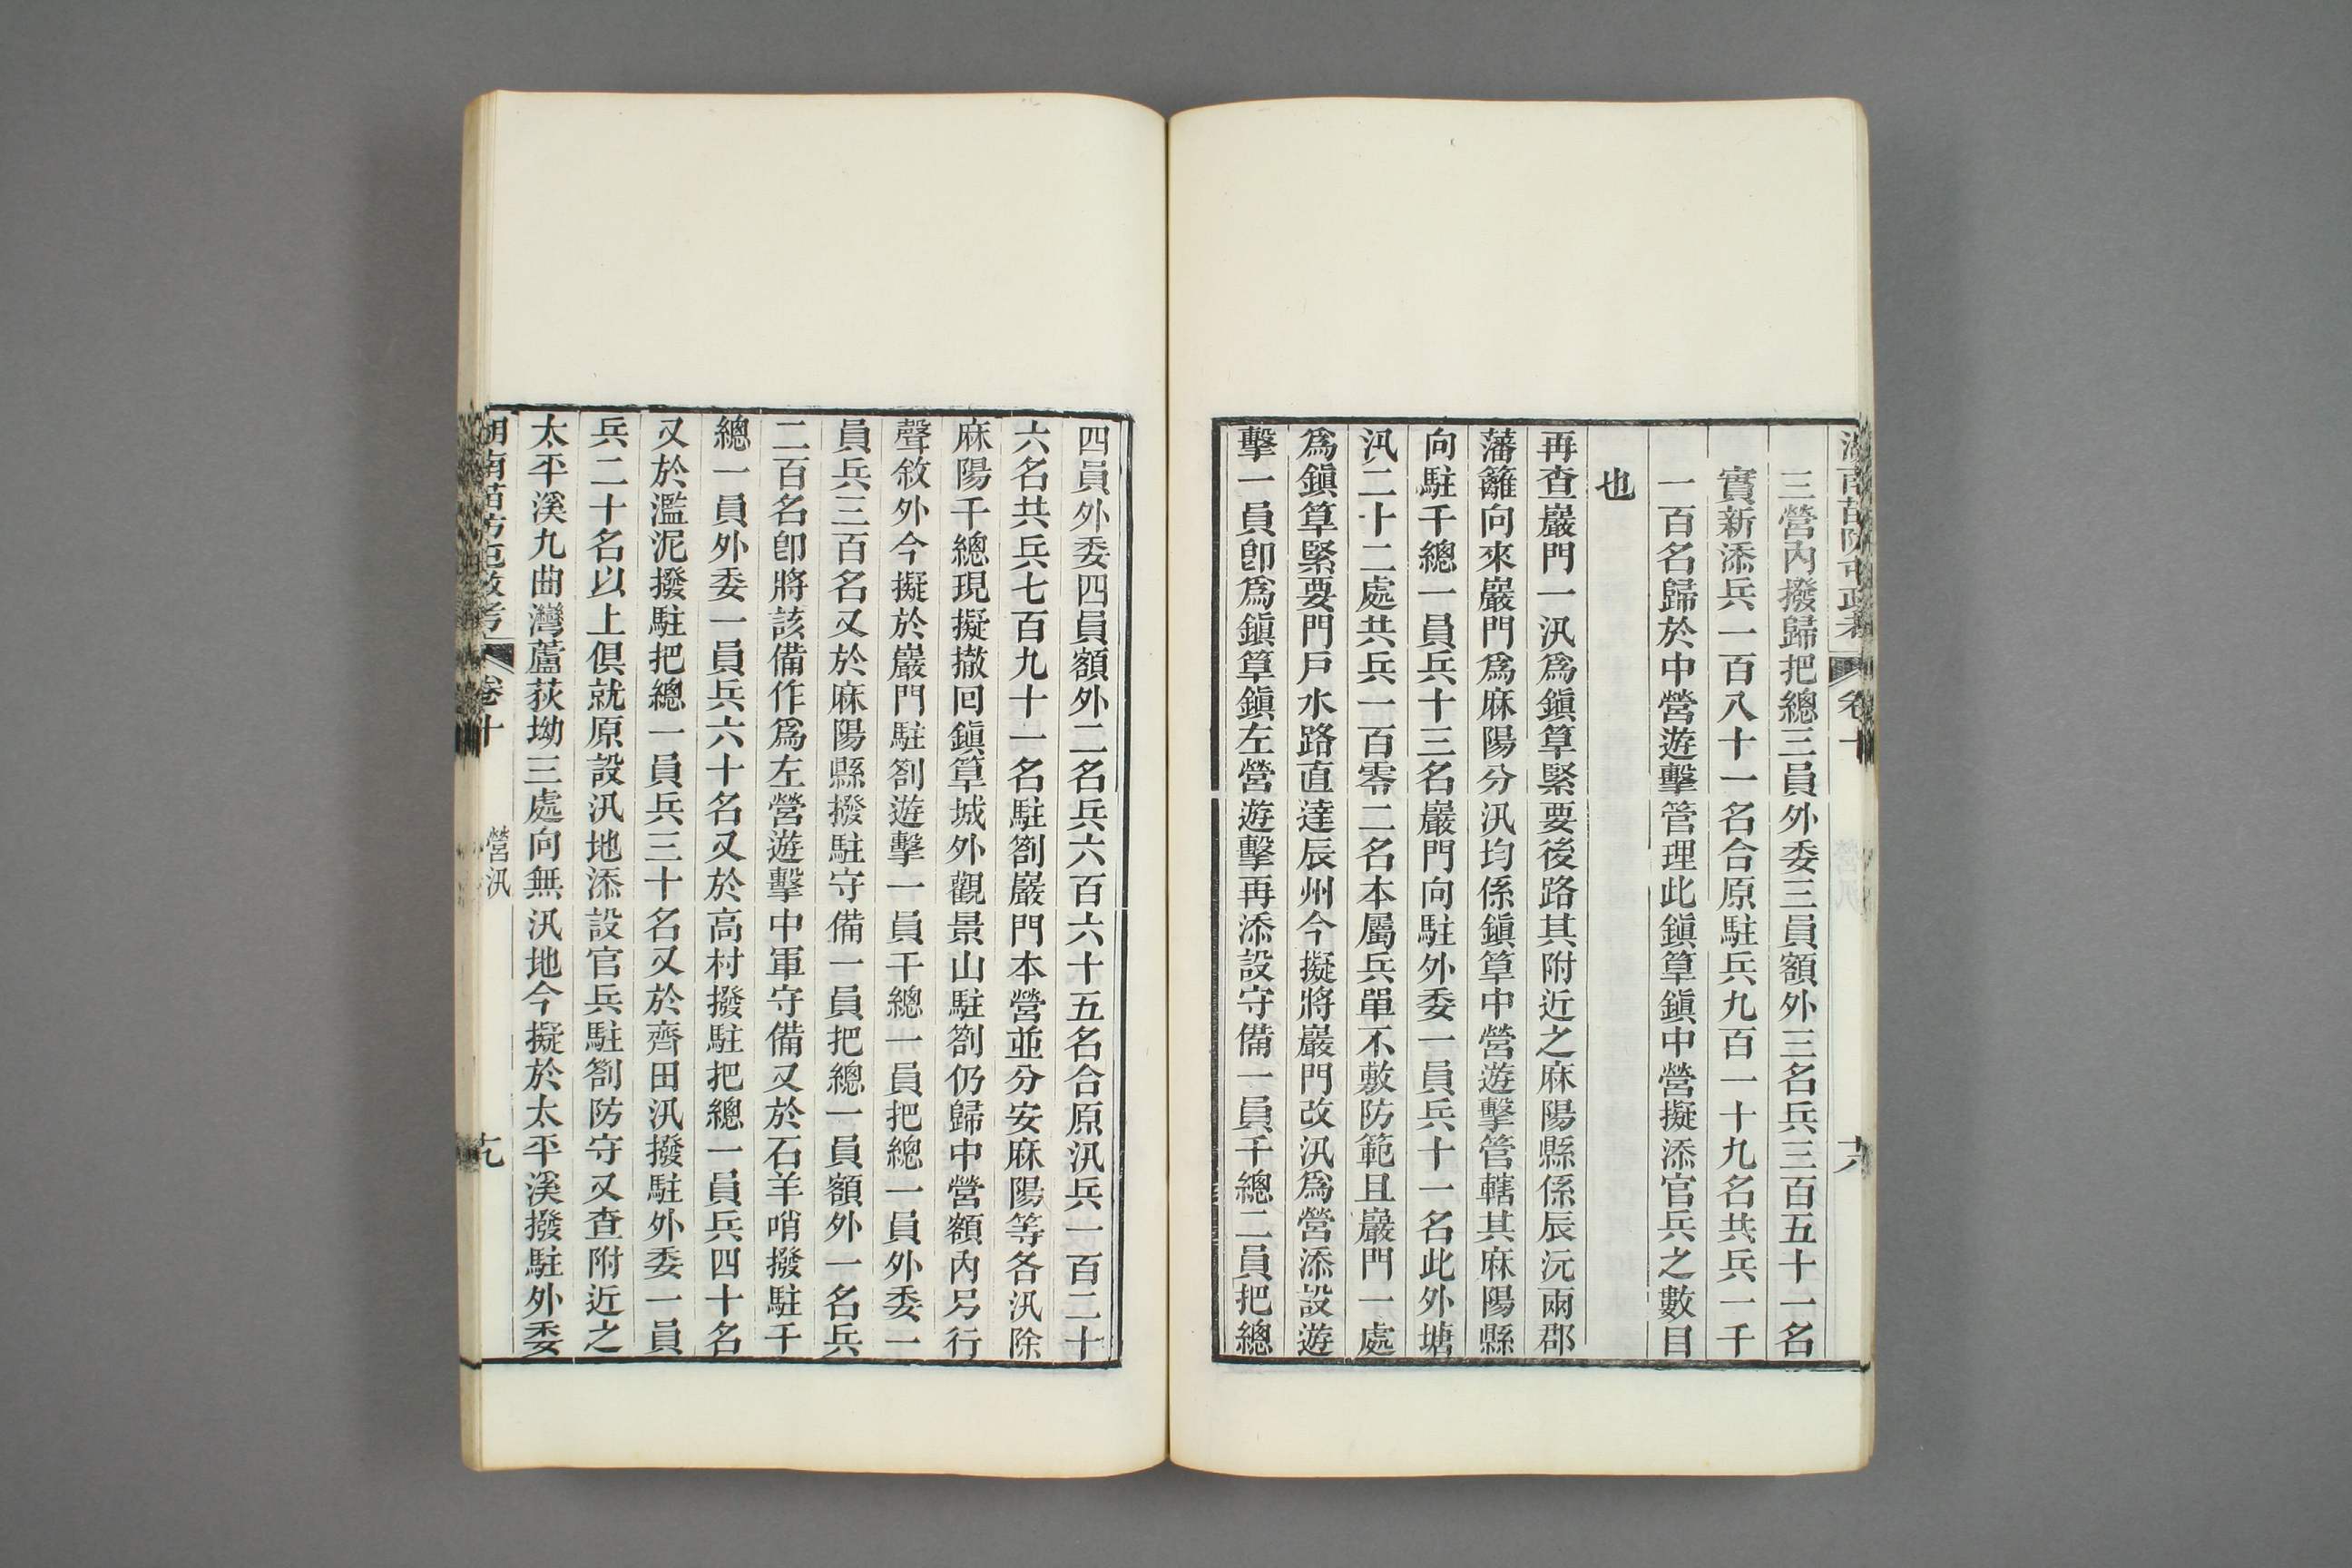 湖南苗防屯政考 卷十 十八
三營內撥歸把總三員外委三員額外三名兵三百五十一名
實新添兵一百八十一名合原駐兵九百一十九名共兵一千
一百名歸於中營遊擊管理此鎭筸鎭中營擬添官兵之數目
也
再查巖門一汛爲鎭筸緊要後路其附近之麻陽縣係辰沅兩郡
藩籬向來巖門爲麻陽分汛均係鎭筸中營遊擊管轄其麻陽縣
向駐千總一員兵十三名巖門向駐外委一員兵十一名此外塘
汛二十二處共兵一百零二名本屬兵單不敷防範且巖門一處
爲鎭筸緊要門戶水路直達辰州今擬將巖門改汛爲營添設遊
擊一員卽爲鎭筸鎭左營遊擊再添設守備一員千總二員把總
四員外委四員額外二名兵六百六十五名合原汛兵一百二十
六名共兵七百九十一名駐劄巖門本營並分安麻陽等各汛除
麻陽千總現擬撤回鎭筸城外觀景山駐劄仍歸中營額內另行
聲敘外今擬於巖門駐劄遊擊一員千總一員把總一員外委一
員兵三百名又於麻陽縣撥駐守備一員把總一員額外一名兵
二百名卽將該備作爲左營遊擊中軍守備又於石羊哨撥駐千
總一員外委一員兵六十名又於高村撥駐把總一員兵四十名
又於濫泥撥駐把總一員兵三十名又於齊田汛撥駐外委一員
兵二十名以上俱就原設汛地添設官兵駐劄防守又查附近之
太平溪九曲灣蘆荻坳三處向無汛地今擬於太平溪撥駐外委
湖南苗防屯政考 卷十 營汛 十九